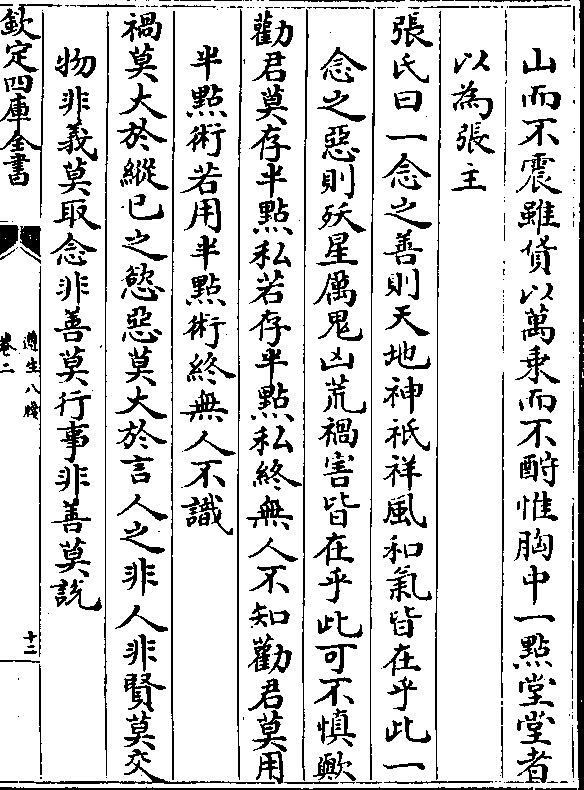 山而不震雖貸以萬乘而不酧惟胸中一點堂堂者
以為張主
張氏曰一念之善則天地神祇祥風和氣皆在乎此一
念之惡則妖星厲鬼凶荒禍害皆在乎此可不慎歟
勸君莫存半點私若存半點私終無人不知勸君莫用
半點術若用半點術終無人不識
禍莫大於縱已之慾惡莫大於言人之非人非賢莫交
物非義莫取念非善莫行事非善莫說
欽定四庫全書
遵生八牋
卷二
十二